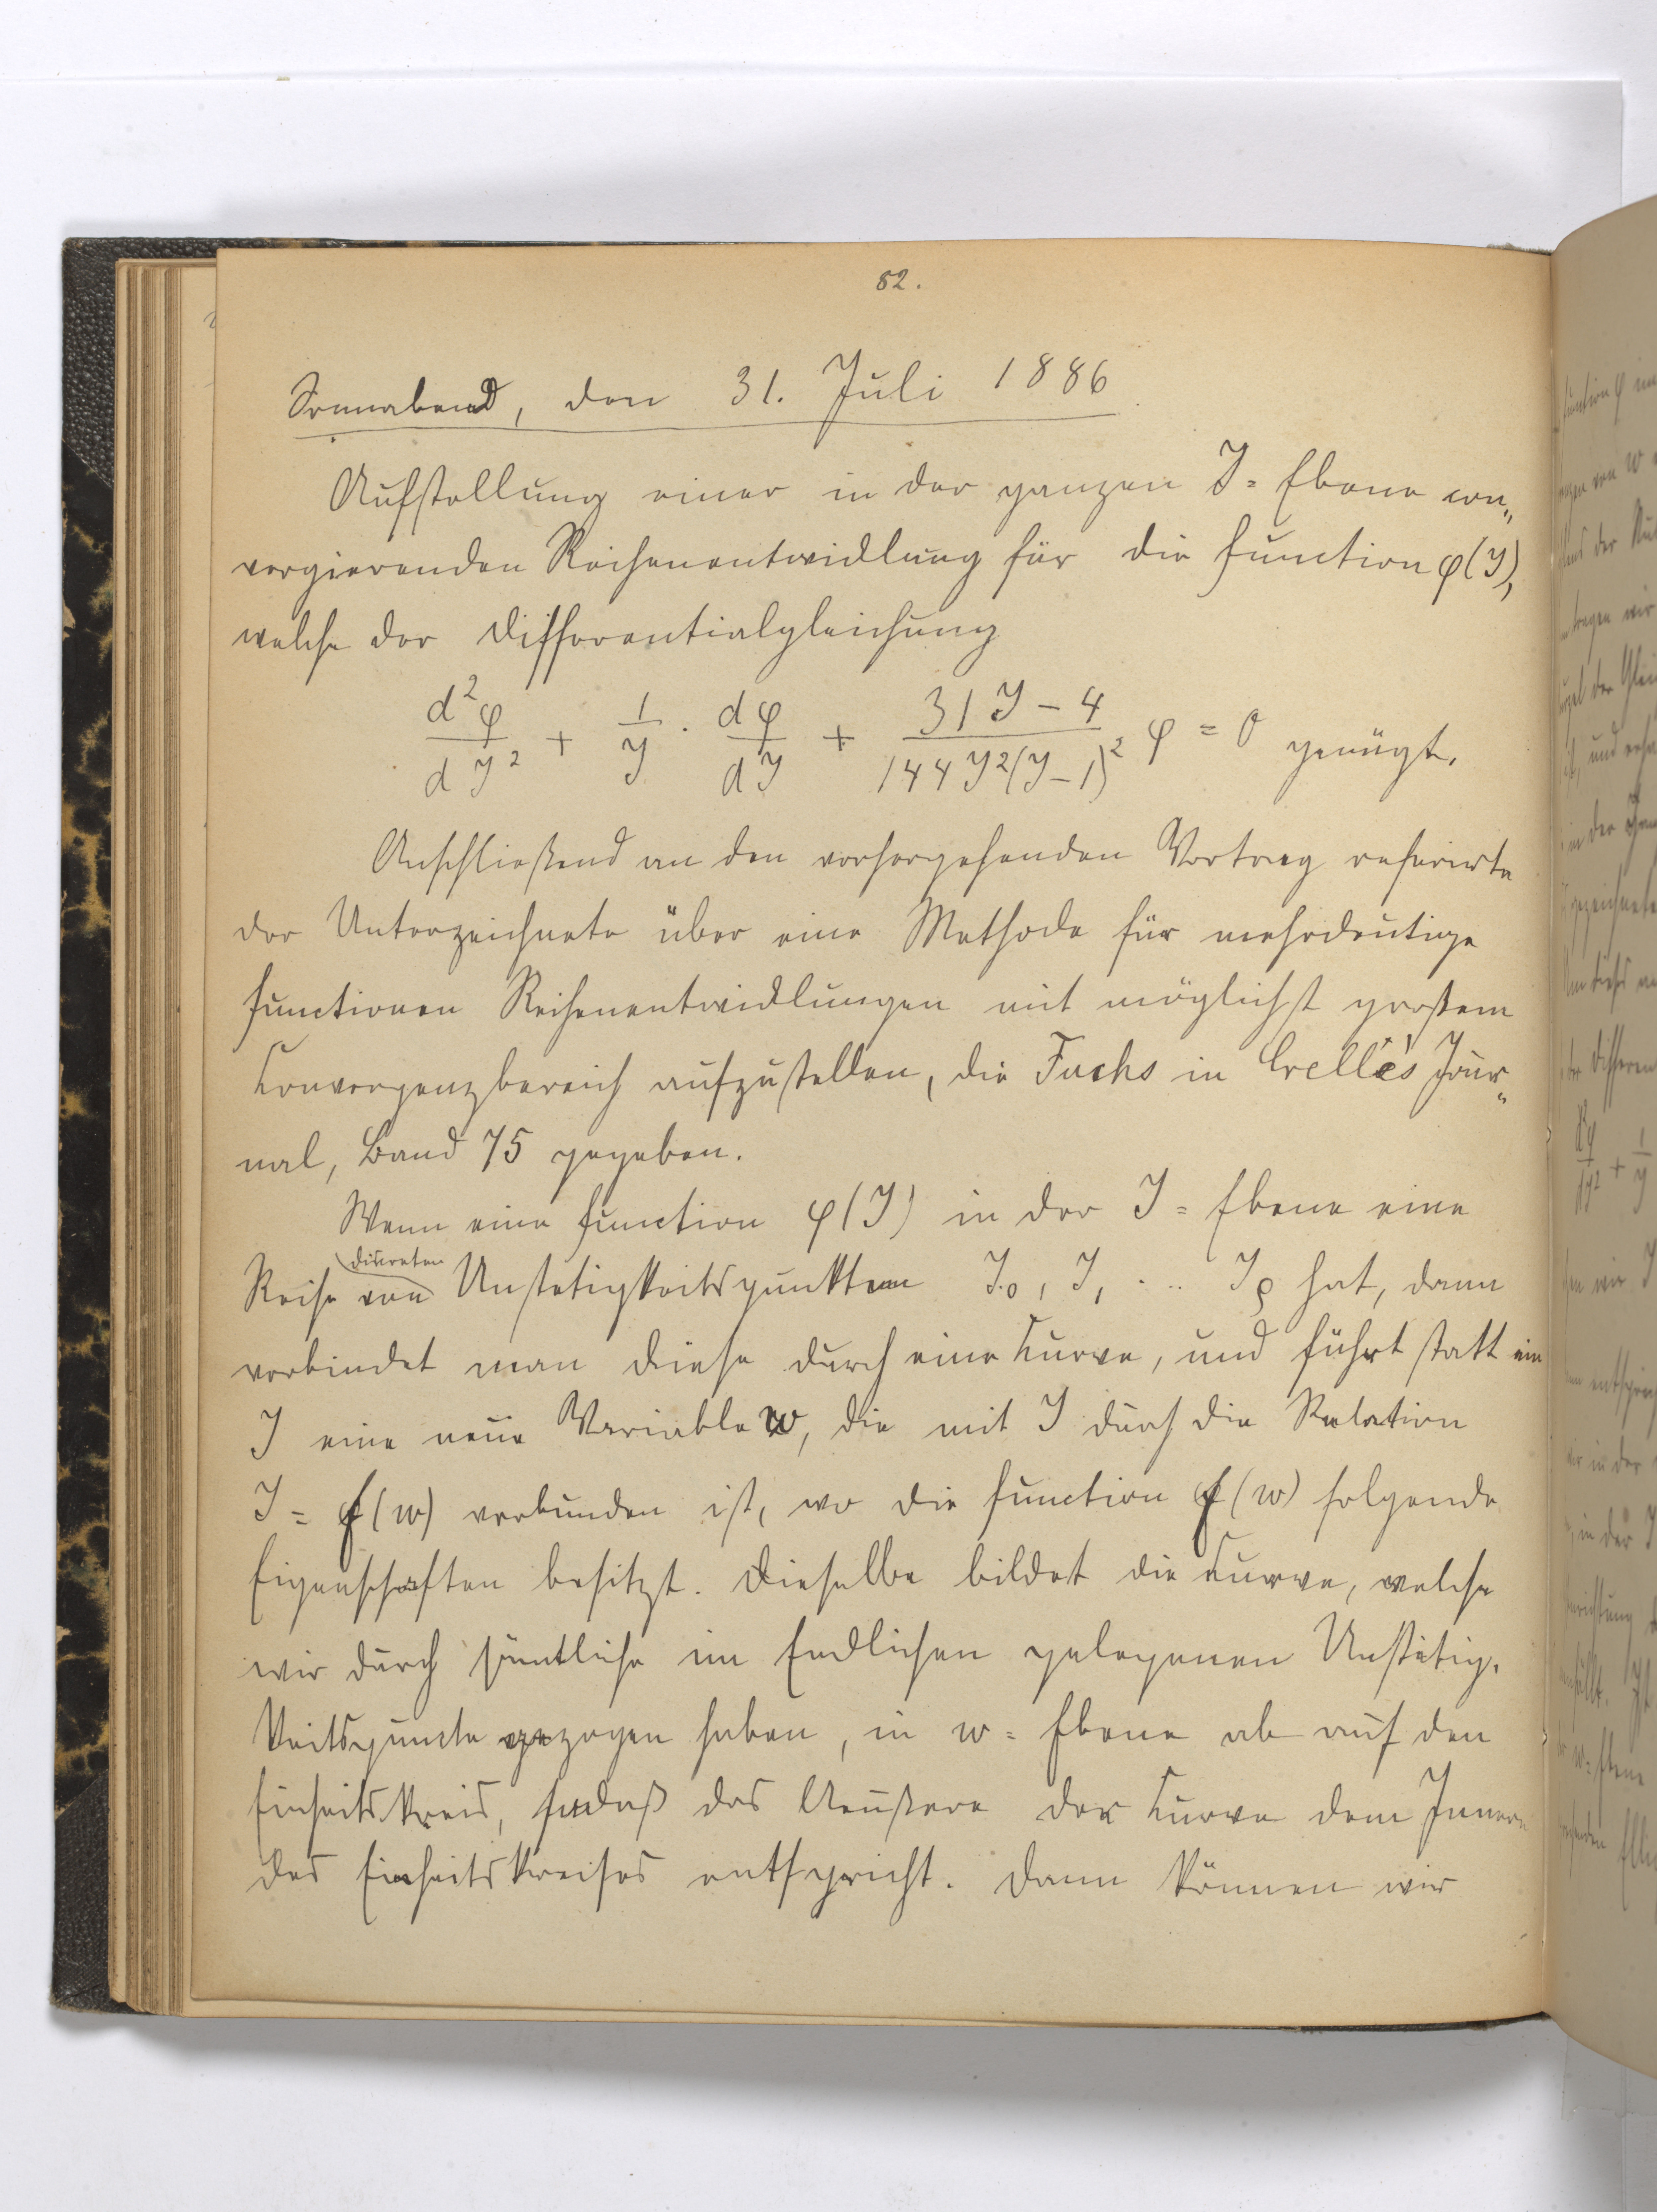 82.
Sonnabend, den 31. Juli 1886
Aufstellung einer in der ganzen J=Ebene con„
vergierenden Reihenentwicklung für die Function φ(J),
welche der Differentialgleichung
d²φ/dJ² + 1/J · dφ/dJ + (31J – 4)/(144J²(J–1)²) φ = 0 genügt.
Anschließend an den vorhergehenden Vortrag referierte
der Unterzeichnete über eine Methode für mehrdeutige
Functionen Reihenentwicklungen mit möglichst großem
Convergenzbereich aufzustellen, die Fuchs in Crelle's Jour„
nal, Band 75 gegeben.
Wenn eine Function φ(J) in der J=Ebene eine
Reihe von discreten Unstetigkeitspunkten J₀, J₁ ... Jρ hat, dann
verbindet man diese durch eine Curve, und führt statt
J eine neue Variable w, die mit J durch die Relation
J = f(w) verbunden ist, wo die Function f(w) folgende
Eigenschaften besitzt. Dieselbe bildet die Curve, welche
wir durch sämtliche im Endlichen gelegenen Unstetig-
keitspuncte gezogen haben, in w=Ebene ab auf den
Einheitskreis, sodaß das Aeußere der Curve dem Innern
des Einheitskreises entspricht. Dann können wir